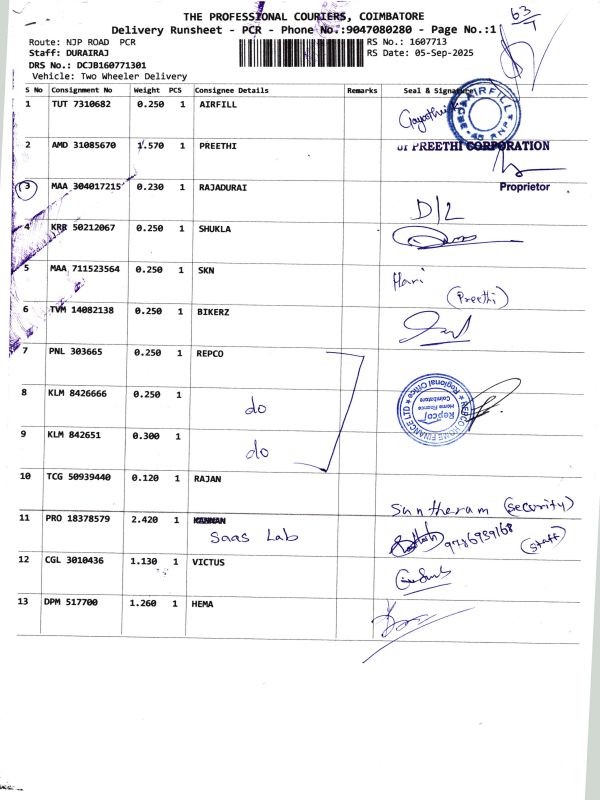 THE PROFESSIONAL COURIERS, COIMBATORE
63/1
Delivery Runsheet - PCR - Phone No.:9047080280 - Page No.:1
Route: NJP ROAD PCR
RS No.: 1607713
Staff: DURAIRAJ
RS Date: 05-Sep-2025
DRS No.: DCJB160771301
Vehicle: Two Wheeler Delivery
S No Consignment No Weight PCS Consignee Details Remarks Seal & Signature
1 TUT 7310682 0.250 1 AIRFILL
AIRFILL
2 AMD 31085670 1.570 1 PREETHI
PREETHI CORPORATION
Proprietor
3 MAA 304017215 0.230 1 RAJADURAI D/L
4 KRR 50212067 0.250 1 SHUKLA
5 MAA 711523564 0.250 1 SKN Hari
(Preethi)
6 TVM 14082138 0.250 1 BIKERZ
7 PNL 303665 0.250 1 REPCO
REPCO HOME FINANCE LTD
Regional Office
Repco
Home Finance
Coimbatore
8 KLM 8426666 0.250 1 do
9 KLM 842651 0.300 1 do
10 TCG 50939440 0.120 1 RAJAN Suntheram (security)
11 PRO 18378579 2.420 1 KANNAN
Saas Lab (staff)
12 CGL 3010436 1.130 1 VICTUS
13 DPM 517700 1.260 1 HEMA